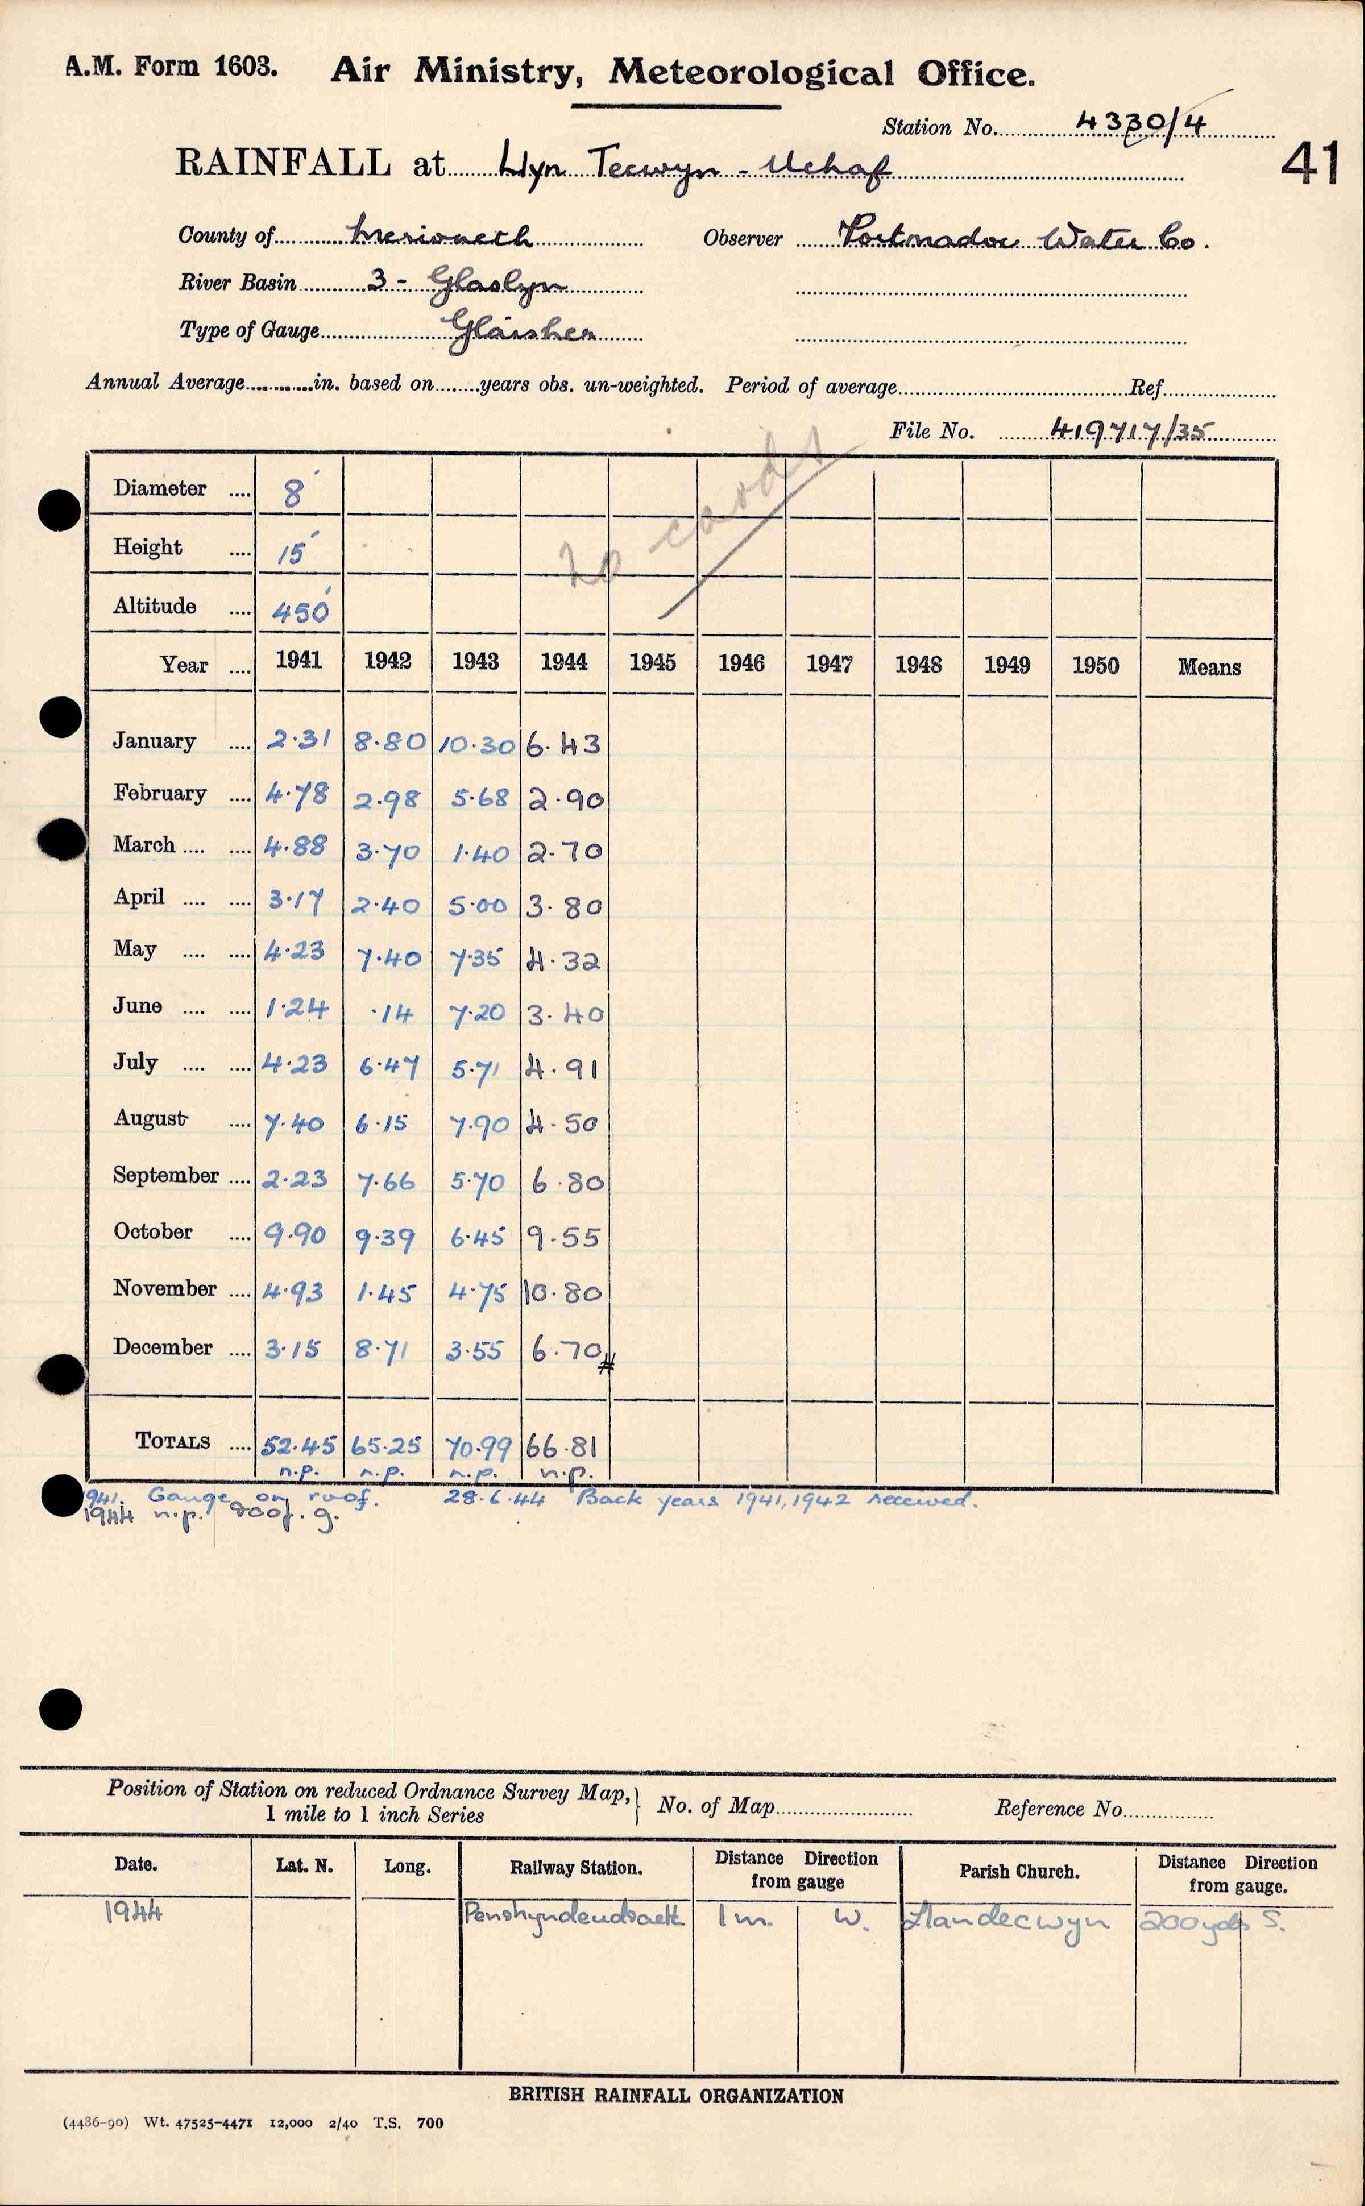 A.M. Form 1603. Air Ministry, Meteorological Office.
Station No. 4330/4
41
RAINFALL at Llyn Tecwyn - Uchaf
County of Merioneth Observer Portmadoc Water Co.
River Basin 3 - Glaslyn
Type of Gauge Glaisher
Annual Average in. based on years obs. un-weighted. Period of average Ref.
File No. 419717/35
no cards
Diameter 8
Height 15
Altitude 450
Year 1941 1942 1943 1944 1945 1946 1947 1948 1949 1950 Means
January 2.31 8.80 10.30 6.43
February 4.78 2.98 5.68 2.90
March 4.88 3.70 1.40 2.70
April 3.17 2.40 5.00 3.80
May 4.23 7.40 7.35 4.32
June 1.24 .14 7.20 3.40
July 4.23 6.47 5.71 4.91
August 7.40 6.15 7.90 4.50
September 2.23 7.66 5.70 6.80
October 9.90 9.39 6.45 9.55
November 4.93 1.45 4.75 10.80
December 3.15 8.71 3.55 6.70 #
TOTALS 52.45 65.25 70.99 66.81
n.p. n.p. n.p. n.p.
1941. Gauge on roof. 28.6.44 Back years 1941, 1942 received.
1944 n.p. roof. g.
Position of Station on reduced Ordnance Survey Map, 1 mile to 1 inch Series } No. of Map Reference No.
Date. Lat. N. Long. Railway Station. Distance Direction from gauge Parish Church. Distance Direction from gauge.
1944 Penrhyndeudraeth 1 m. W. Llandecwyn 200 yds S.
BRITISH RAINFALL ORGANIZATION
(4486-90) Wt. 47525-4471 12,000 2/40 T.S. 700